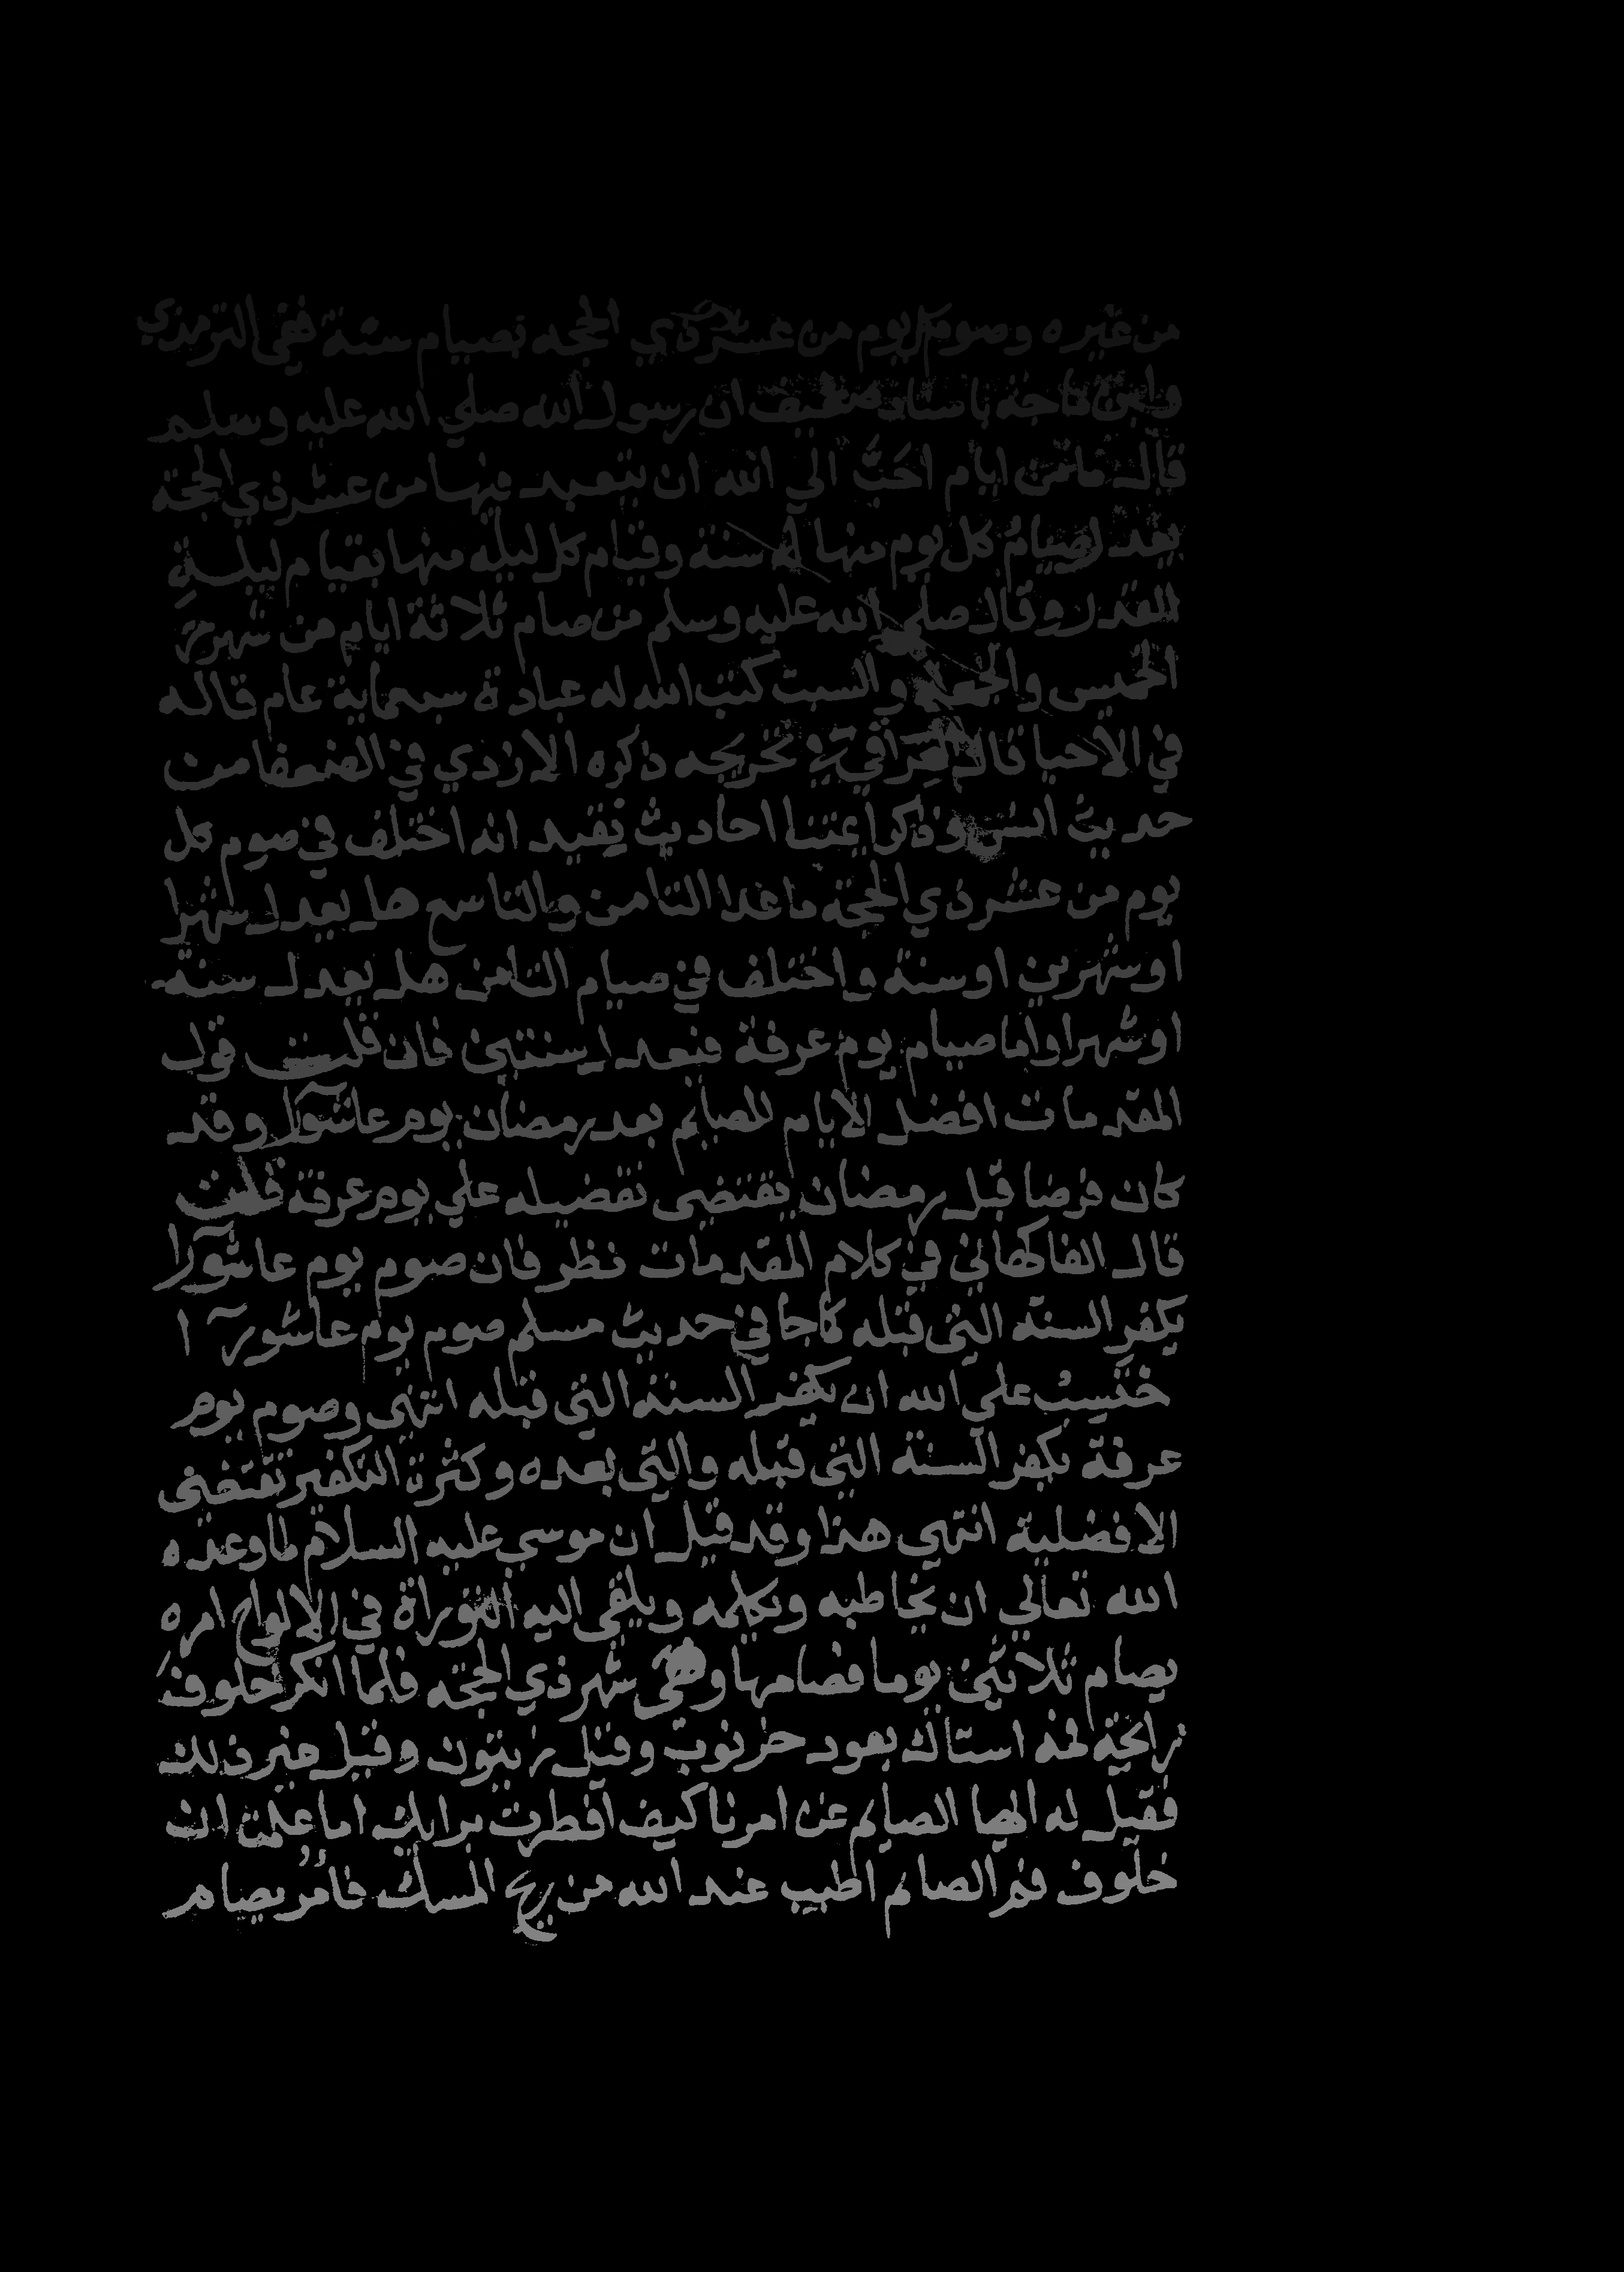 من غيره وصوم كل يوم من عشر ذي الحجه بصيام سنة ففي الترمذي
وابن ماجة باسناد ضعيف ان رسول الله صلي الله عليه وسلم
قال ما من ايام احَبُّ الي الله ان يتعبد فيها من عشر ذي الحجة
يعدل صيام كل يوم منها له سنة وقيام كل ليلة منها بقيام ليلة
القدر وقال صلي الله عليه وسلم من صام ثلاثة ايام من شهر
الخميس والجمعة والسبت كتب الله له عبادة سبعماية عام قاله
في الاحيا قال العراقي في تخريجه ذكره الازدي في الضعفا من
حديث انس وذكر احاديث تفيد انه اختلف في صوم كل
يوم من عشر ذي الحجة ما عدا الثامن والتاسع هل يعدل شهرا
او شهرين او سنة واختلف في صيام الثامن هل يعدل سنة
او شهرا واما صيام يوم عرفة فيعدل سنتين فان قلت قول
المقدمات افضل الايام للصيام بعد رمضان يوم عاشورا وقد
كان فرضا قبل رمضان يقتضى تفضيله علي يوم عرفة قلت
قال الفاكهاني في كلام المقدمات نظر فان صوم يوم عاشورا
يكفر السنة التي قبله كما جا في حديث مسلم صوم يوم عاشورآ ا
حتسب علي الله ان يكفر السنة التي قبله انتهى وصوم يوم
عرفة يكفر السنة التي قبله والتي بعده وكثرة التكفير تقتضى
الافضلية انتهي هذا وقد قيل ان موسي عليه السلام لما وعده
الله تعالي ان يخاطبه ويكلمه ويلقى اليه التوراة في الالواح امره
بصام ثلاثين يوما فصامها وهى شهر ذي الحجه فلما انكر خلوف
رايحة فمه استاك بعود خرنوب وقيل زيتون وقيل غير ذلك
فقيل له ايها الصايم عن امرنا كيف افطرت برايك اما علمت ان
خلوف فم الصايم اطيب عند الله من ريح المسك فامُر بصام